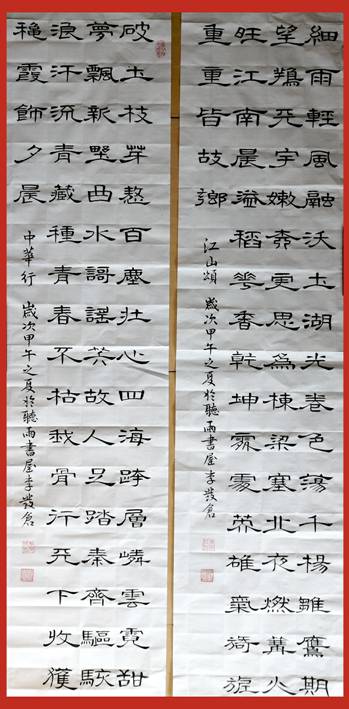 細雨輕風融沃土湖光卷色蕩千楊雛鷹期
望天宇嫩喬更思為棟梁塞北夜燃篝火
旺江南晨溢稻花香乾坤霖英雄氣綺旎
重重皆故鄉
江山頌 歲次甲午之夏於聽雨書屋李發倉
破土枝芽百塵壯心四海跨層嶙雲霓甜
夢飄新野曲水謌謠故人足踏秦齊驅駭
浪汗流青藏種青春不枯我骨行天下收獲
穐霞飾夕晨
中華行 歲次甲午之夏於聽雨書屋李發倉